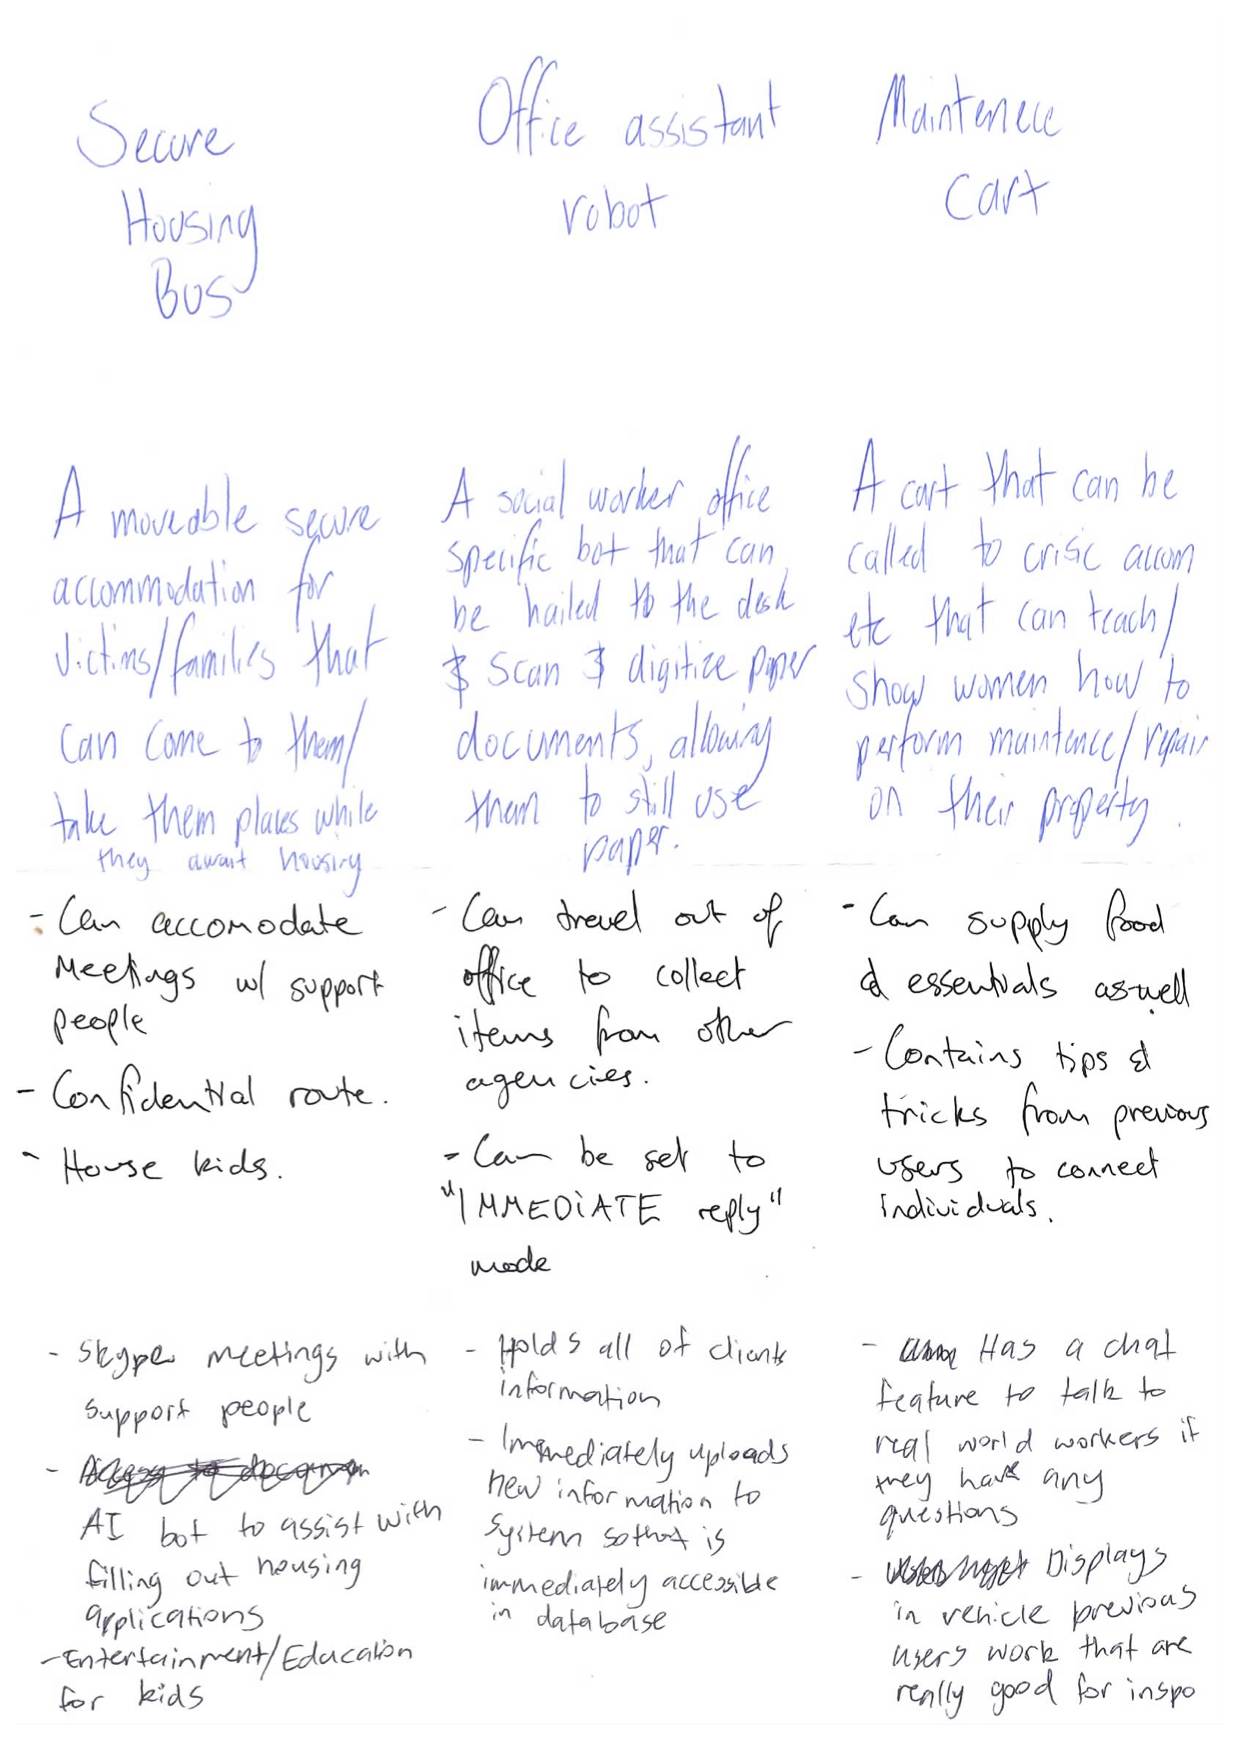 Secure
Housing
Bus
A moveable secure
accommodation for
victims/families that
can come to them/
take them places while
they await housing
- Can accomodate
Meetings w/ support
people
- Confidential route.
- House kids.
- Skype meetings with
support people
-
AI bot to assist with
filling out housing
applications
- Entertainment/Education
for kids
Office assistant
robot
A social worker office
specific bot that can
be hailed to the desk
& scan & digitize paper
documents, allowing
them to still use
paper.
- Can travel out of
office to collect
items from other
agencies.
- Can be set to
"IMMEDiATE reply"
mode
- Holds all of clients
information
- Immediately uploads
new information to
system so that is
immediately accessible
in database
Maintenece
Cart
A cart that can be
called to crisic accom
etc that can teach/
show women how to
perform maintence/repair
on their property.
- Can supply food
& essentials aswell
- Contains tips &
tricks from previous
users to connect
individuals.
- Has a chat
feature to talk to
real world workers if
they have any
questions
- Displays
in vehicle previous
users work that are
really good for inspo